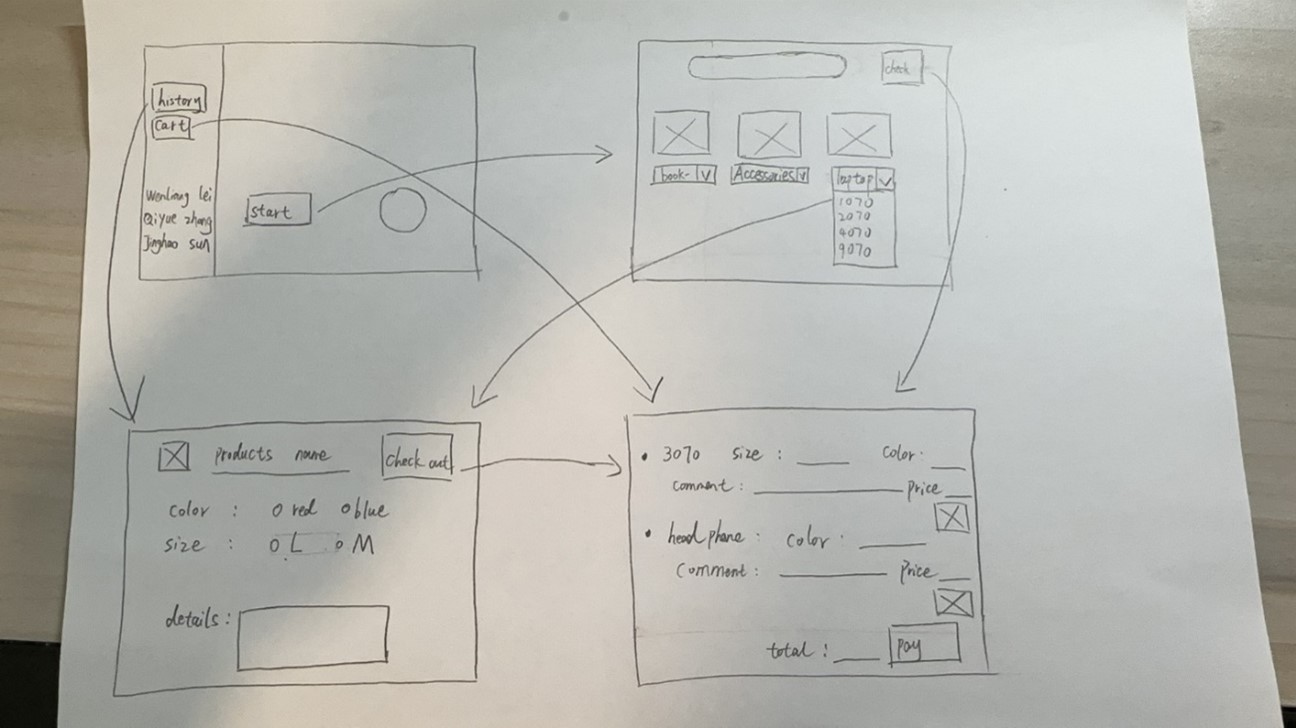 history
Cart
Wenliang lei
Qiyue zhang
Jinghao sun
start
check
book- v
Accessories v
laptop v
1070
2070
4070
9070
products name
Check out
color : o red o blue
size : o L o M
details :
• 3070 size : ___ color : ___
comment : ___ price ___
• head phone : color : ___
Comment : ___ price ___
total : ___ pay